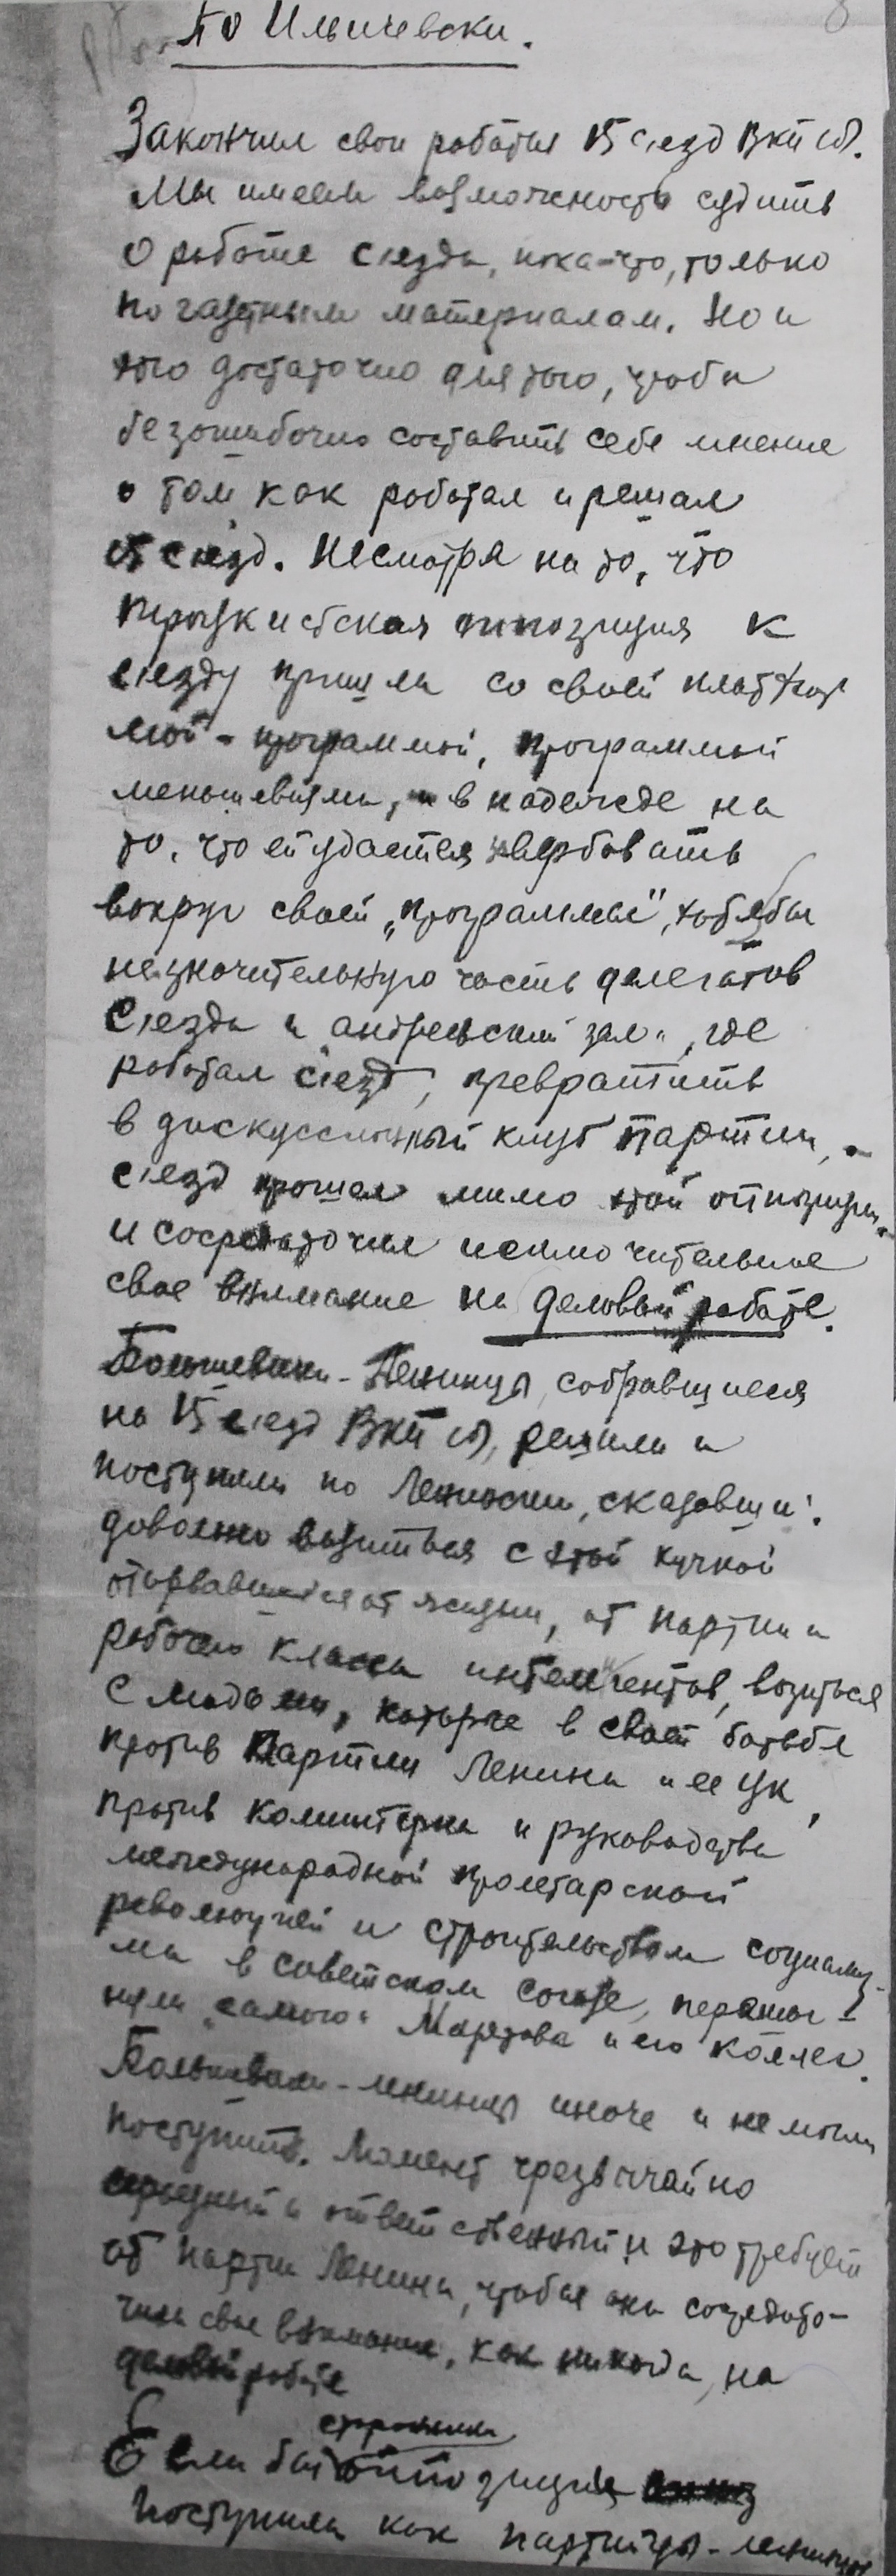 По Ильичевски.
Закончил свои работы 15 с'езд ВКП(б).
Мы имеем возможность судить
о работе с'езда, пока-что, только
по газетным материалам. Но и
это достаточно для того, чтобы
безошибочно составить себе мнение
о том как работал и решал
15 с'езд. Несмотря на то, что
троцкистская оппозиция к
с'езду пришла со своей платфор
мой - программой, программой
меньшевизма, и в надежде на
то, что ей удастся навербовать
вокруг своей „программы", хотя бы
незначительную часть делегатов
С'езда и андреевский зал", где
работал с'езд, превратить
в дискуссионный клуб партии, -
с'езд прошел мимо этой оппозиции
и сосредоточил исключительное
свое внимание на деловой работе.
Большевики-Ленинцы, собравшиеся
на 15 с'езд ВКП(б), решили и
поступили по Ленински, сказавши:
довольно возиться с этой кучкой
оторвавшихся от жизни, от партии и
рабочего класса интеллигентов, возиться
с людьми, которые в своей борьбе
против Партии Ленина и ее ЦК,
против коминтерна и руководства
международной пролетарской
революцией и строительством социализ-
ма в советском союзе, перещего-
ляли „самого" Мартова и его коллег.
Большевики-ленинцы иначе и не могли
поступить. Момент чрезвычайно
серьезный и ответственный и это требует
от партии Ленина, чтобы она сосредото-
чила свое внимание, как никогда, на
деловой работе
сторонники
Если бы оппозиции
поступили как партийцы-ленинцы